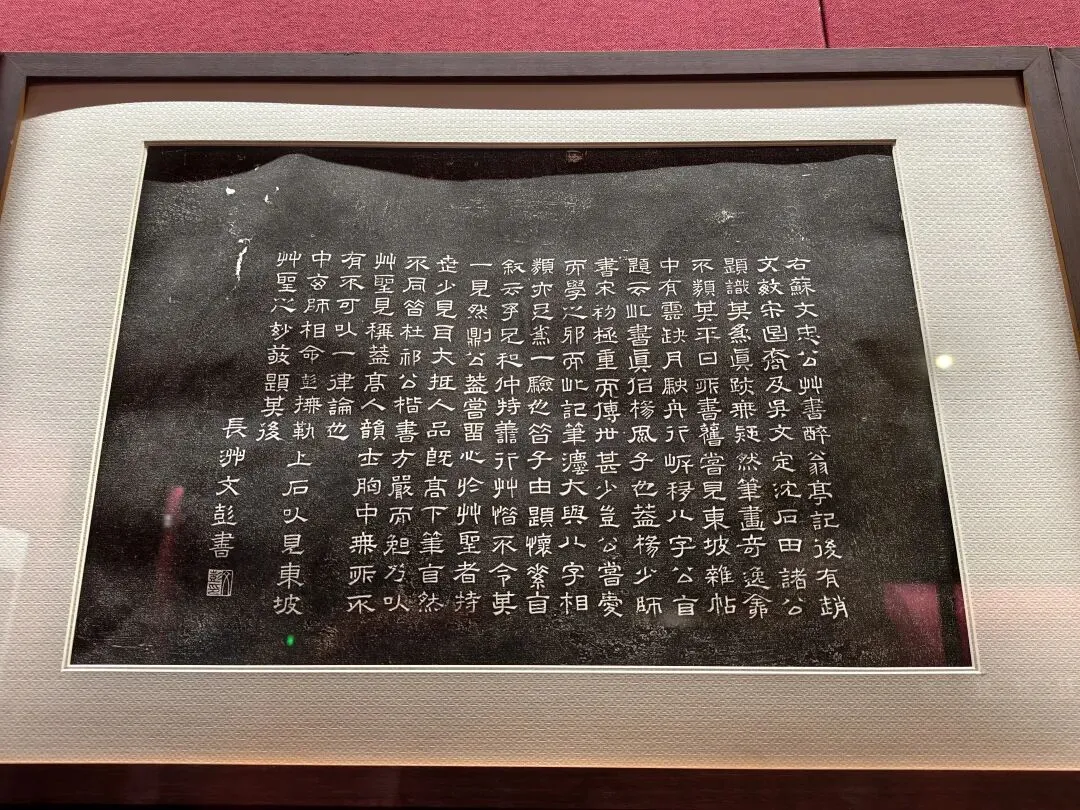 右蘇文忠公艸書醉翁亭記後有趙
文敏宋昌裔及吳文定沈石田諸公
題識其爲眞跡無疑然筆畫奇逸
不類其平日所書舊嘗見東坡雜帖
中有雲缺月駃舟行㟁移八字公自
題云此書眞侣楊風子也蓋楊少師
書宋初極重而傳世甚少豈公嘗愛
而學之邪而此記筆灋大與八字相
類亦足爲一驗也昔子由題懷素自
敘云予兄和仲特善行艸惜不令其
一見然則公蓋嘗畱心於艸聖者特
世少見耳大抵人品旣高下筆自然
不同昔杜祁公楷書方嚴而晚乃以
艸聖見稱蓋高人韻士胸中無所不
有不可以一律論也
中玄師相命彭橅勒上石以見東坡
艸聖之妙敬題其後
長洲文彭書